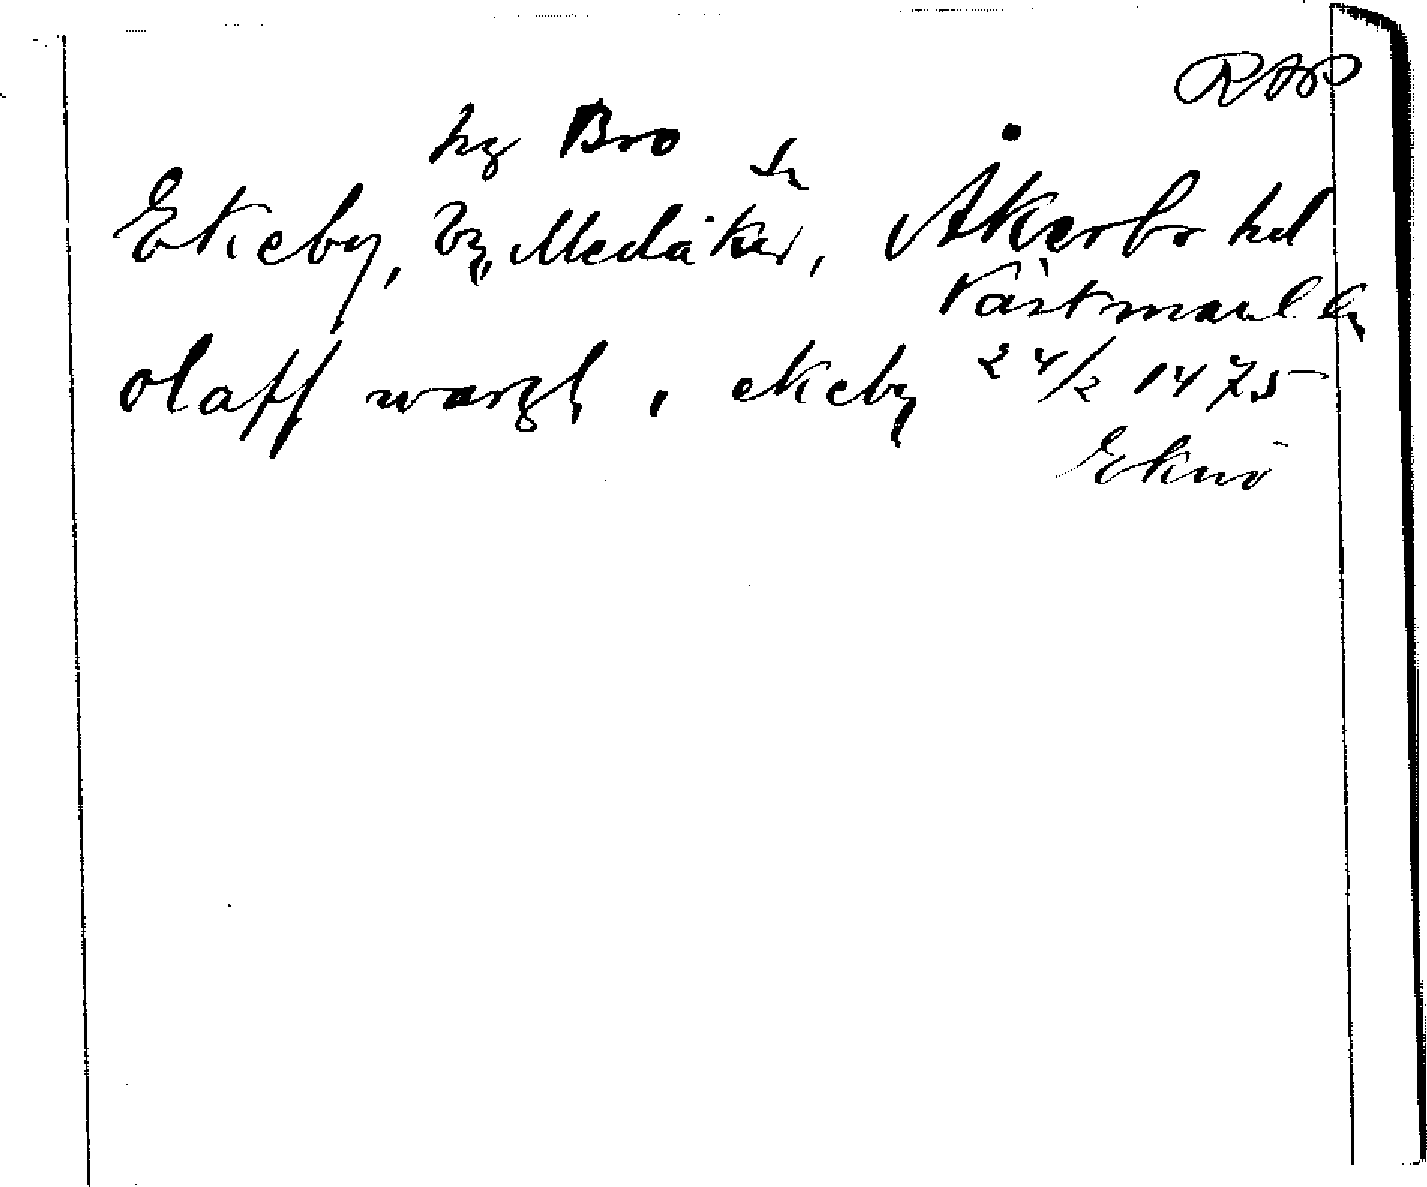 RAP
hg Bro sn
Ekeby, by, Medåker, Åkerbo hd
Västmanl. ln
olaff wargh, i ekeby 24/2 1475
Eknö